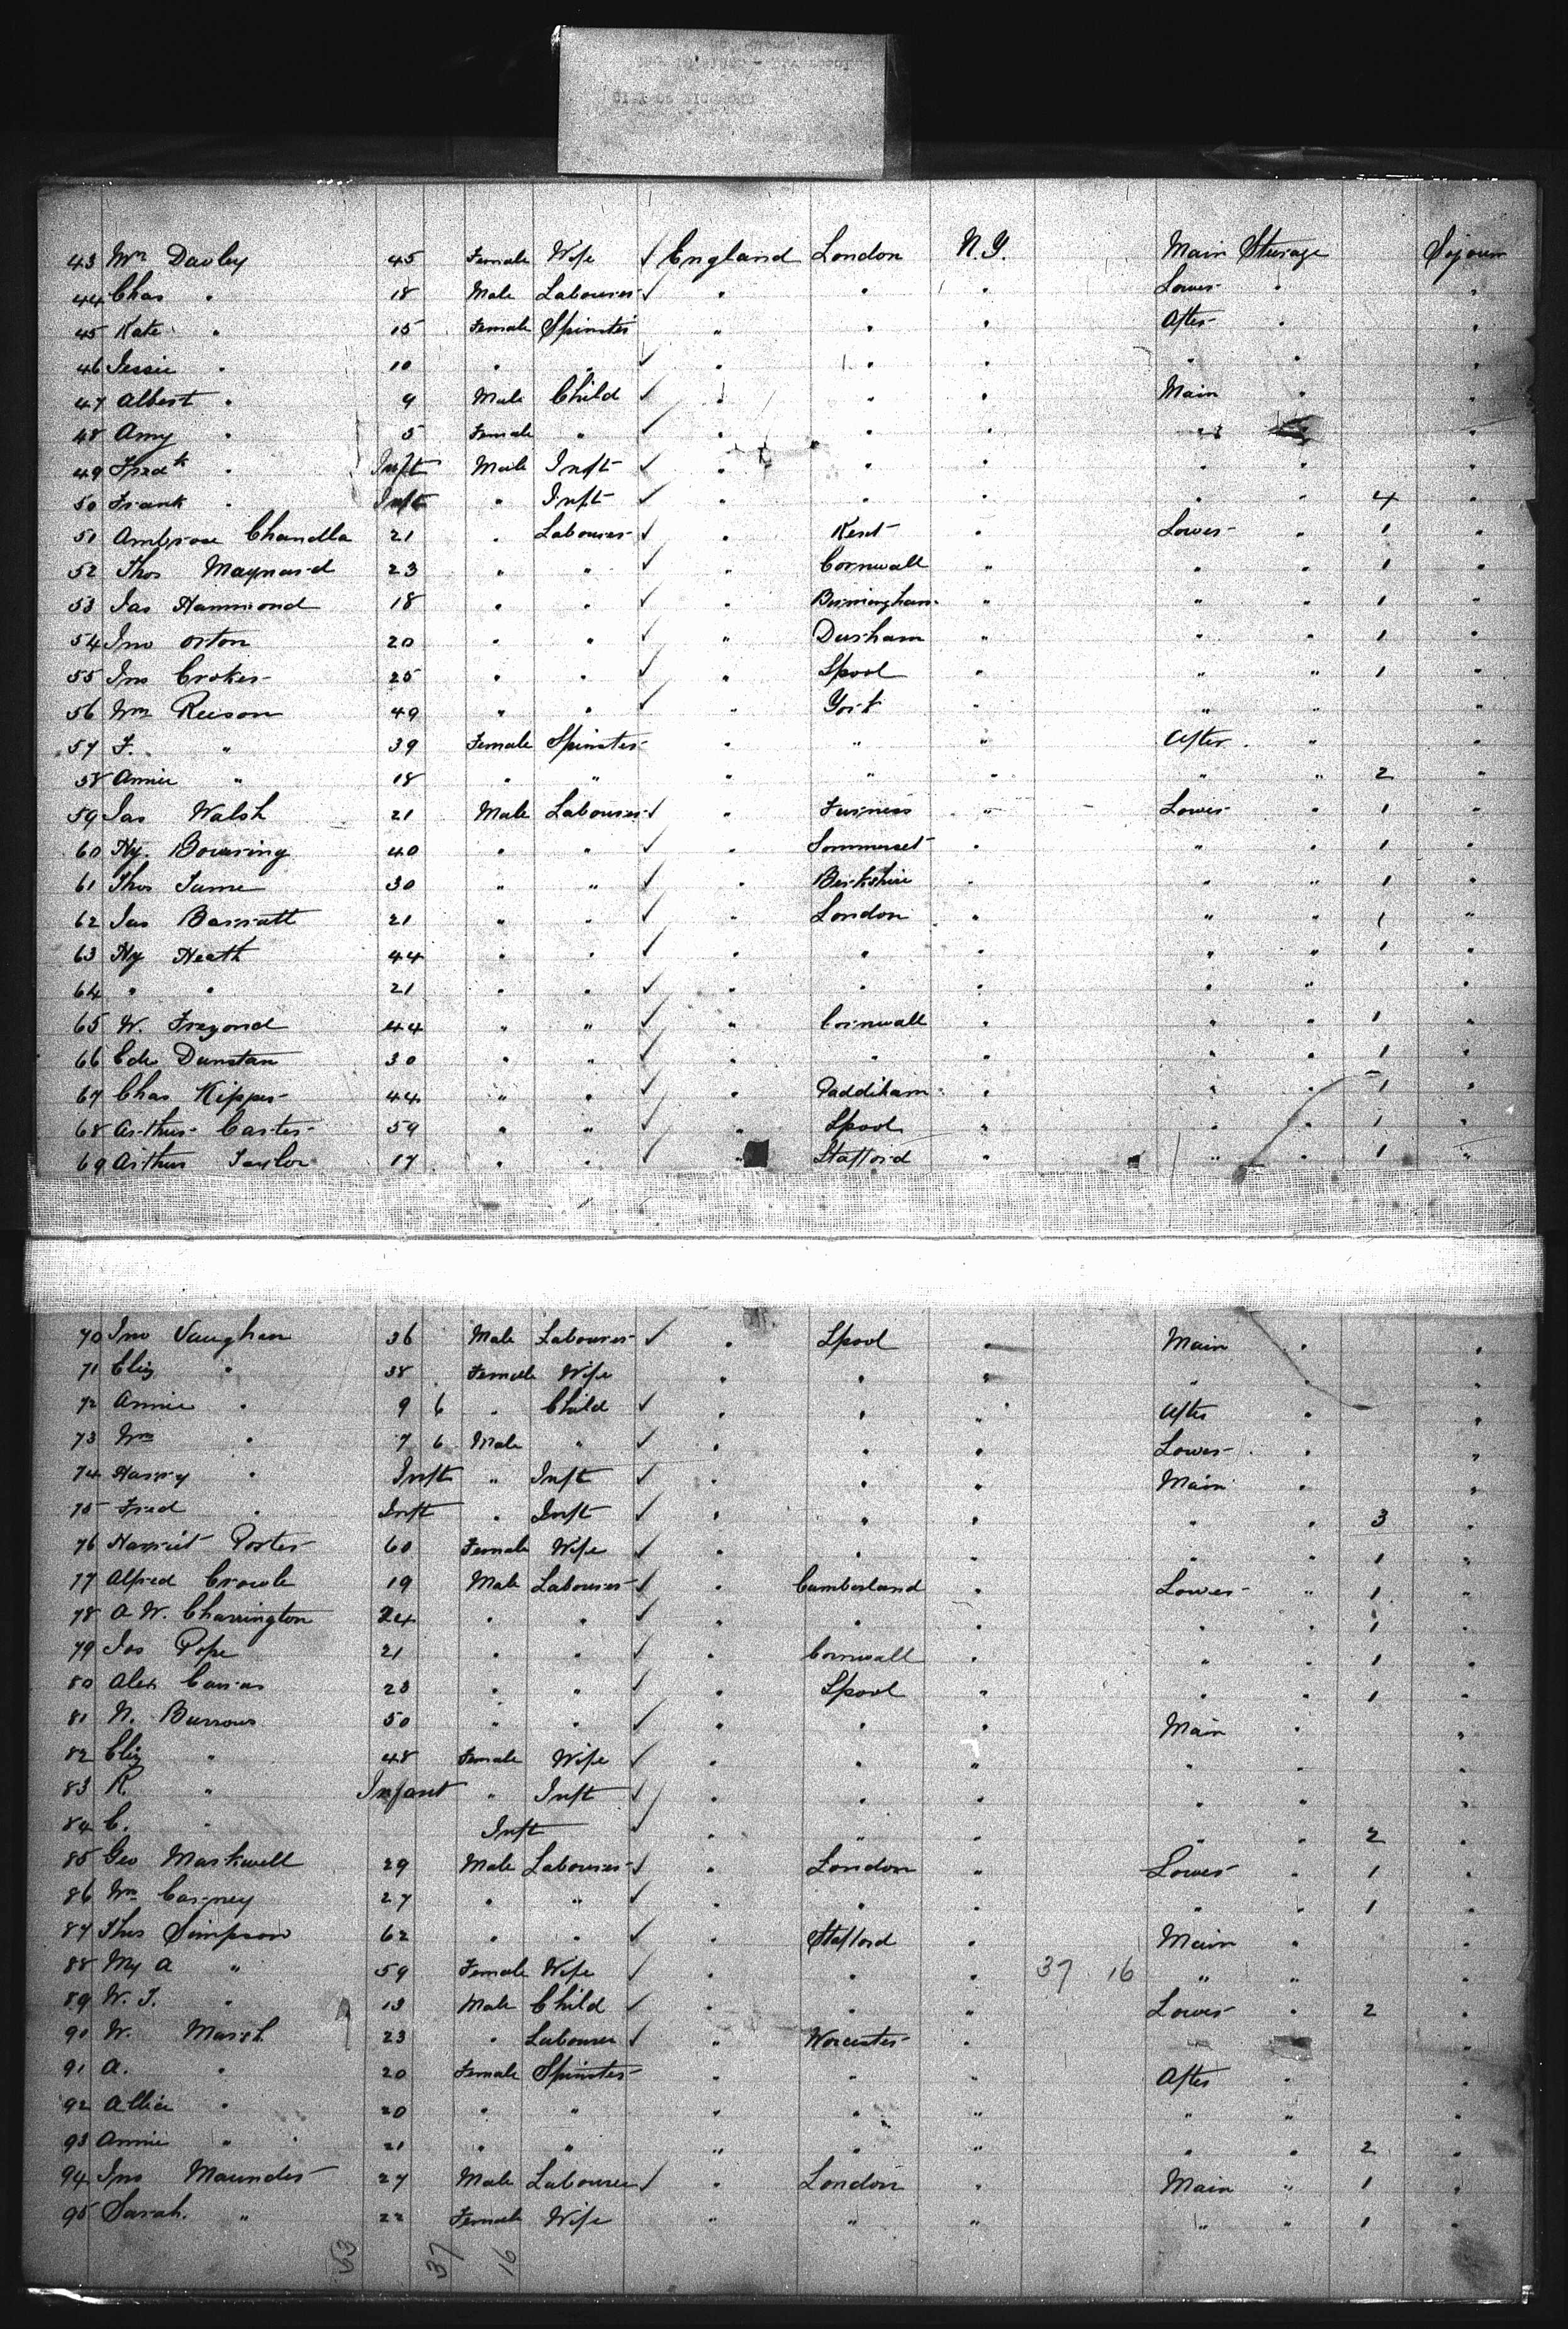 43 Mrs Davley 45 Female Wife ✓ England London N.Y. Main Sturage Sojourn
44 Chas " 18 Male Labourer ✓ " " " Lower " "
45 Kate " 15 Female Spinster " " " After " "
46 Jessie " 10 " " ✓ " " " " " "
47 Albert " 9 Male Child ✓ " " " Main " "
48 Amy " 5 Female " ✓ " " " " "
49 Fredk " Inft Male Inft ✓ " " " " " "
50 Frank " Inft " Inft ✓ " " " " " 4 "
51 Ambrose Chandla 21 " Labourer ✓ " Kent " Lower " 1 "
52 Thos Maynard 23 " " ✓ " Cornwall " " " 1 "
53 Jas Hammond 18 " " ✓ " Birmingham " " " 1 "
54 Jno Orton 20 " " ✓ " Durham " " " 1 "
55 Jno Croker 25 " " ✓ " Lpool " " " 1 "
56 Wm Reeson 49 " " ✓ " York " " " "
57 F. " 39 Female Spinster " " " After " "
58 Annie " 18 " " " " " " " 2 "
59 Jas Walsh 21 Male Labourer ✓ " Furness " Lower " 1 "
60 Hy. Bowring 40 " " ✓ " Sommerset " " " 1 "
61 Thos Tame 30 " " ✓ " Berkshire " " " 1 "
62 Jas Barratt 21 " " ✓ " London " " " 1 "
63 Hy Heath 44 " " ✓ " " " " " 1 "
64 " " 21 " " ✓ " " " " " "
65 W. 44 " " ✓ " Cornwall " " " 1 "
66 Edw Dunstan 30 " " ✓ " " " " " 1 "
67 Chas Kipper 44 " " ✓ " Paddiham " " " 1 "
68 Arthur Carter 59 " " ✓ " Lpool " " " 1 "
69 Arthur Taylor 17 " " ✓ " Stafford " " " 1 "
70 Jno Vaughan 36 Male Labourer ✓ " Lpool " Main " "
71 Eliz " 38 Female Wife " " " " "
72 Annie " 9 6 " Child ✓ " " " After " "
73 Wm " 7 6 Male " ✓ " " " Lower " "
74 Harry " Inft " Inft ✓ " " " Main " "
75 Fred " Inft " Inft ✓ " " " " " 3 "
76 Harriet Porter 60 Female Wife ✓ " " " " " 1 "
77 Alfred Crowle 19 Male Labourer ✓ " Cumberland " Lower " 1 "
78 A W. Charrington 24 " " ✓ " " " " " 1 "
79 Jos Pope 21 " " ✓ " Cornwall " " " 1 "
80 Alex 23 " " ✓ " Lpool " " " 1 "
81 N. Burrows 50 " " ✓ " " " Main " "
82 Eliz " 48 Female Wife ✓ " " " " " "
83 R. " Infant " Inft ✓ " " " " " "
84 C. " Inft ✓ " " " " " 2 "
85 Geo Markwell 29 Male Labourer ✓ " London " Lower " 1 "
86 Wm Carney 27 " " ✓ " " " " " 1 "
87 Thos Simpson 62 " " ✓ " Stafford " Main " "
88 My A " 59 Female Wife ✓ " " " 37 16 " " "
89 W. J. " 13 Male Child ✓ " " " Lower " 2 "
90 W. Marsh 23 " Labourer ✓ " Worcester " "
91 A. " 20 Female Spinster " " " After " "
92 Allice " 20 " " " " " " " "
93 Annie " 21 " " " " " " " 2 "
94 Jno Maunder 27 Male Labourer ✓ " London " Main " 1 "
95 Sarah " 22 Female Wife " " " " " 1 "
53 37 16